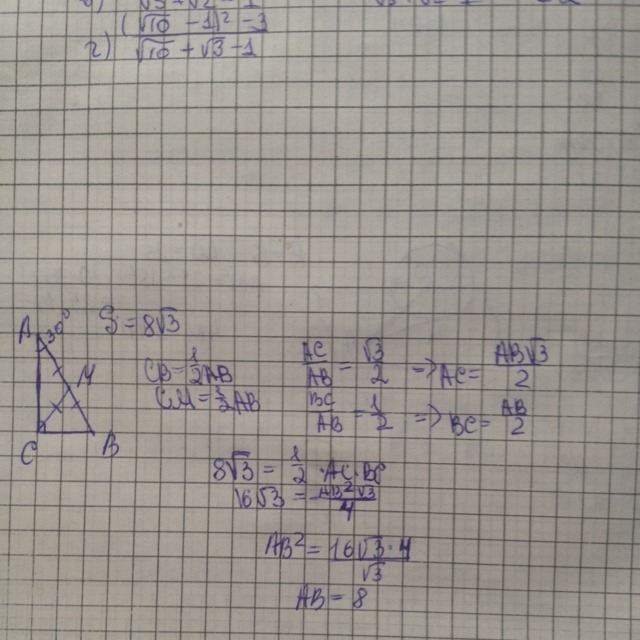 (√10 - 1)² - 3
г) √10 + √3 - 1
A 30° S = 8√3
M
C B
CB = 1/2 AB
CM = 1/2 AB
AC/AB = √3/2 => AC = AB√3/2
BC/AB = 1/2 => BC = AB/2
8√3 = 1/2 · AC · BC
16√3 = AB²√3/4
AB² = 16√3 · 4/√3
AB = 8